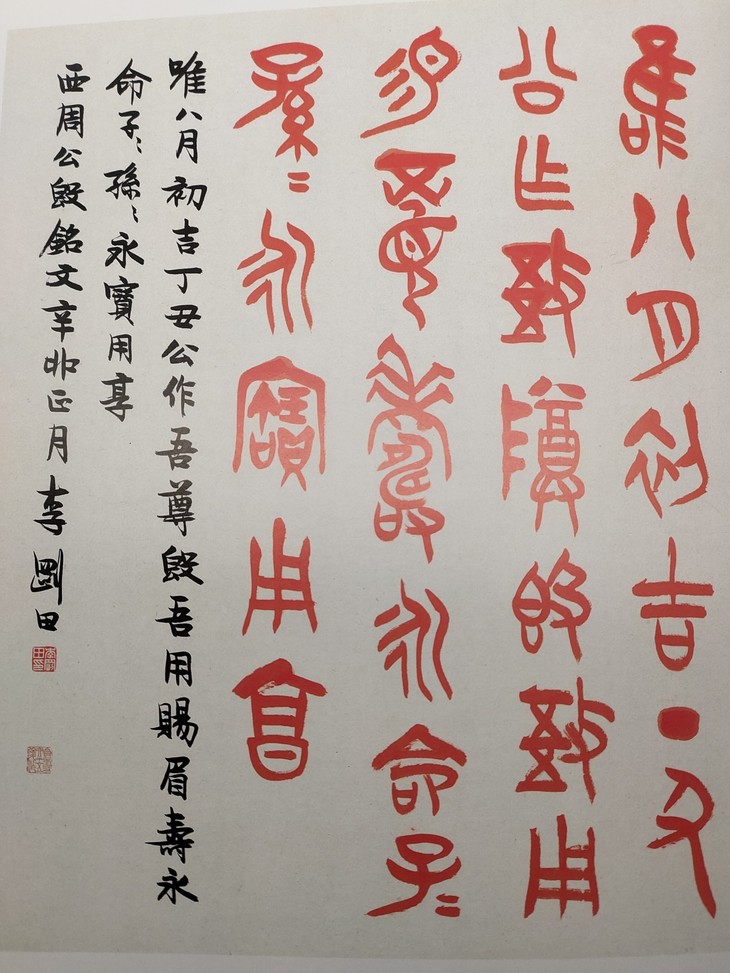 唯八月初吉丁丑
公作敔尊𣪘敔用
賜眉壽永命子〻
孫〻永寶用享
唯八月初吉丁丑公作吾尊𣪘吾用賜眉壽永
命子〻孫〻永寶用享
西周公𣪘銘文辛卯正月李剛田
李剛田印